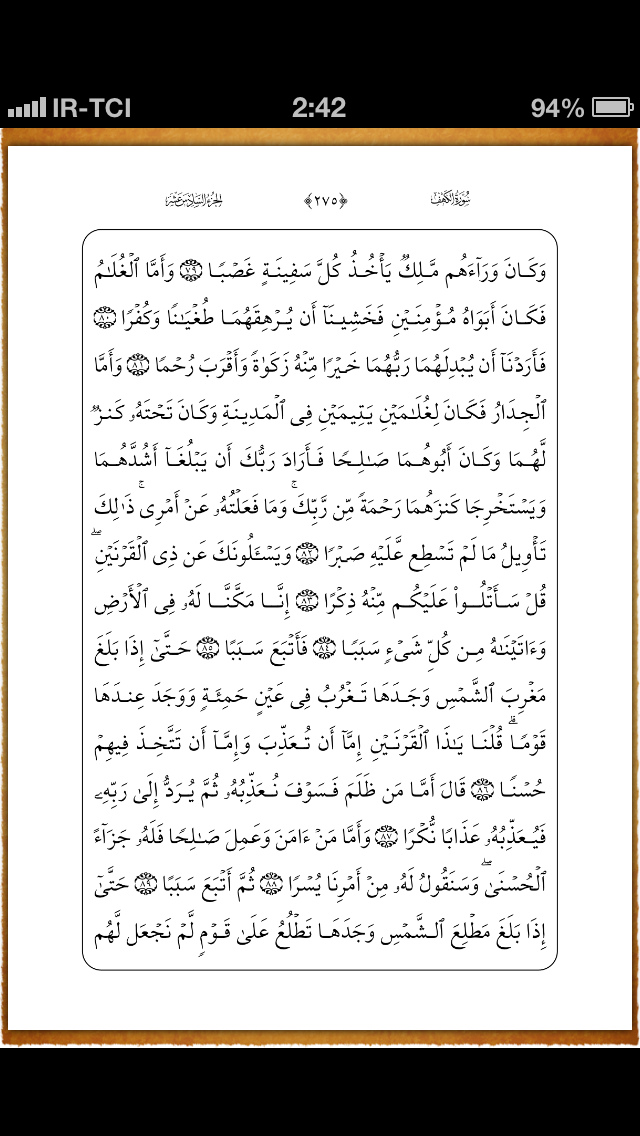 IR-TCI 2:42 94%
سُورَةُ الكَهۡفِ ﴿٢٧٥﴾ الجُزءُ السَّادِسَ عَشَرَ
وَكَانَ وَرَآءَهُم مَّلِكٞ يَأۡخُذُ كُلَّ سَفِينَةٍ غَصۡبٗا ٧٩ وَأَمَّا ٱلۡغُلَٰمُ
فَكَانَ أَبَوَاهُ مُؤۡمِنَيۡنِ فَخَشِينَآ أَن يُرۡهِقَهُمَا طُغۡيَٰنٗا وَكُفۡرٗا ٨٠
فَأَرَدۡنَآ أَن يُبۡدِلَهُمَا رَبُّهُمَا خَيۡرٗا مِّنۡهُ زَكَوٰةٗ وَأَقۡرَبَ رُحۡمٗا ٨١ وَأَمَّا
ٱلۡجِدَارُ فَكَانَ لِغُلَٰمَيۡنِ يَتِيمَيۡنِ فِي ٱلۡمَدِينَةِ وَكَانَ تَحۡتَهُۥ كَنزٞ
لَّهُمَا وَكَانَ أَبُوهُمَا صَٰلِحٗا فَأَرَادَ رَبُّكَ أَن يَبۡلُغَآ أَشُدَّهُمَا
وَيَسۡتَخۡرِجَا كَنزَهُمَا رَحۡمَةٗ مِّن رَّبِّكَۚ وَمَا فَعَلۡتُهُۥ عَنۡ أَمۡرِيۚ ذَٰلِكَ
تَأۡوِيلُ مَا لَمۡ تَسۡطِع عَّلَيۡهِ صَبۡرٗا ٨٢ وَيَسۡـَٔلُونَكَ عَن ذِي ٱلۡقَرۡنَيۡنِۖ
قُلۡ سَأَتۡلُواْ عَلَيۡكُم مِّنۡهُ ذِكۡرًا ٨٣ إِنَّا مَكَّنَّا لَهُۥ فِي ٱلۡأَرۡضِ
وَءَاتَيۡنَٰهُ مِن كُلِّ شَيۡءٖ سَبَبٗا ٨٤ فَأَتۡبَعَ سَبَبًا ٨٥ حَتَّىٰٓ إِذَا بَلَغَ
مَغۡرِبَ ٱلشَّمۡسِ وَجَدَهَا تَغۡرُبُ فِي عَيۡنٍ حَمِئَةٖ وَوَجَدَ عِندَهَا
قَوۡمٗاۗ قُلۡنَا يَٰذَا ٱلۡقَرۡنَيۡنِ إِمَّآ أَن تُعَذِّبَ وَإِمَّآ أَن تَتَّخِذَ فِيهِمۡ
حُسۡنٗا ٨٦ قَالَ أَمَّا مَن ظَلَمَ فَسَوۡفَ نُعَذِّبُهُۥ ثُمَّ يُرَدُّ إِلَىٰ رَبِّهِۦ
فَيُعَذِّبُهُۥ عَذَابٗا نُّكۡرٗا ٨٧ وَأَمَّا مَنۡ ءَامَنَ وَعَمِلَ صَٰلِحٗا فَلَهُۥ جَزَآءً
ٱلۡحُسۡنَىٰۖ وَسَنَقُولُ لَهُۥ مِنۡ أَمۡرِنَا يُسۡرٗا ٨٨ ثُمَّ أَتۡبَعَ سَبَبًا ٨٩ حَتَّىٰٓ
إِذَا بَلَغَ مَطۡلِعَ ٱلشَّمۡسِ وَجَدَهَا تَطۡلُعُ عَلَىٰ قَوۡمٖ لَّمۡ نَجۡعَل لَّهُم